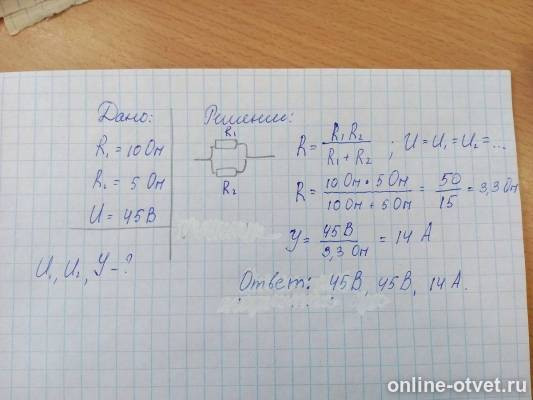 Дано:
R₁ = 10 Ом
R₂ = 5 Ом
U = 45 В
U₁, U₂, Y - ?
Решение:
R₁
R₂
R = R₁R₂ / R₁ + R₂ ; U = U₁ = U₂ = ...
R = 10 Ом • 5 Ом / 10 Ом + 5 Ом = 50 / 15 = 3,3 Ом
Y = 45 В / 3,3 Ом = 14 А
Ответ: 45 В, 45 В, 14 А.
online-otvet.ru